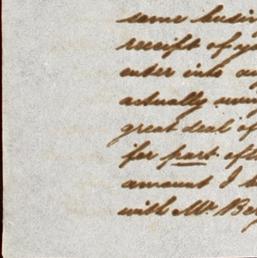 same busin
receipt of yo
enter into
actually
great deal of
for part of
amount I
with Mr. Be